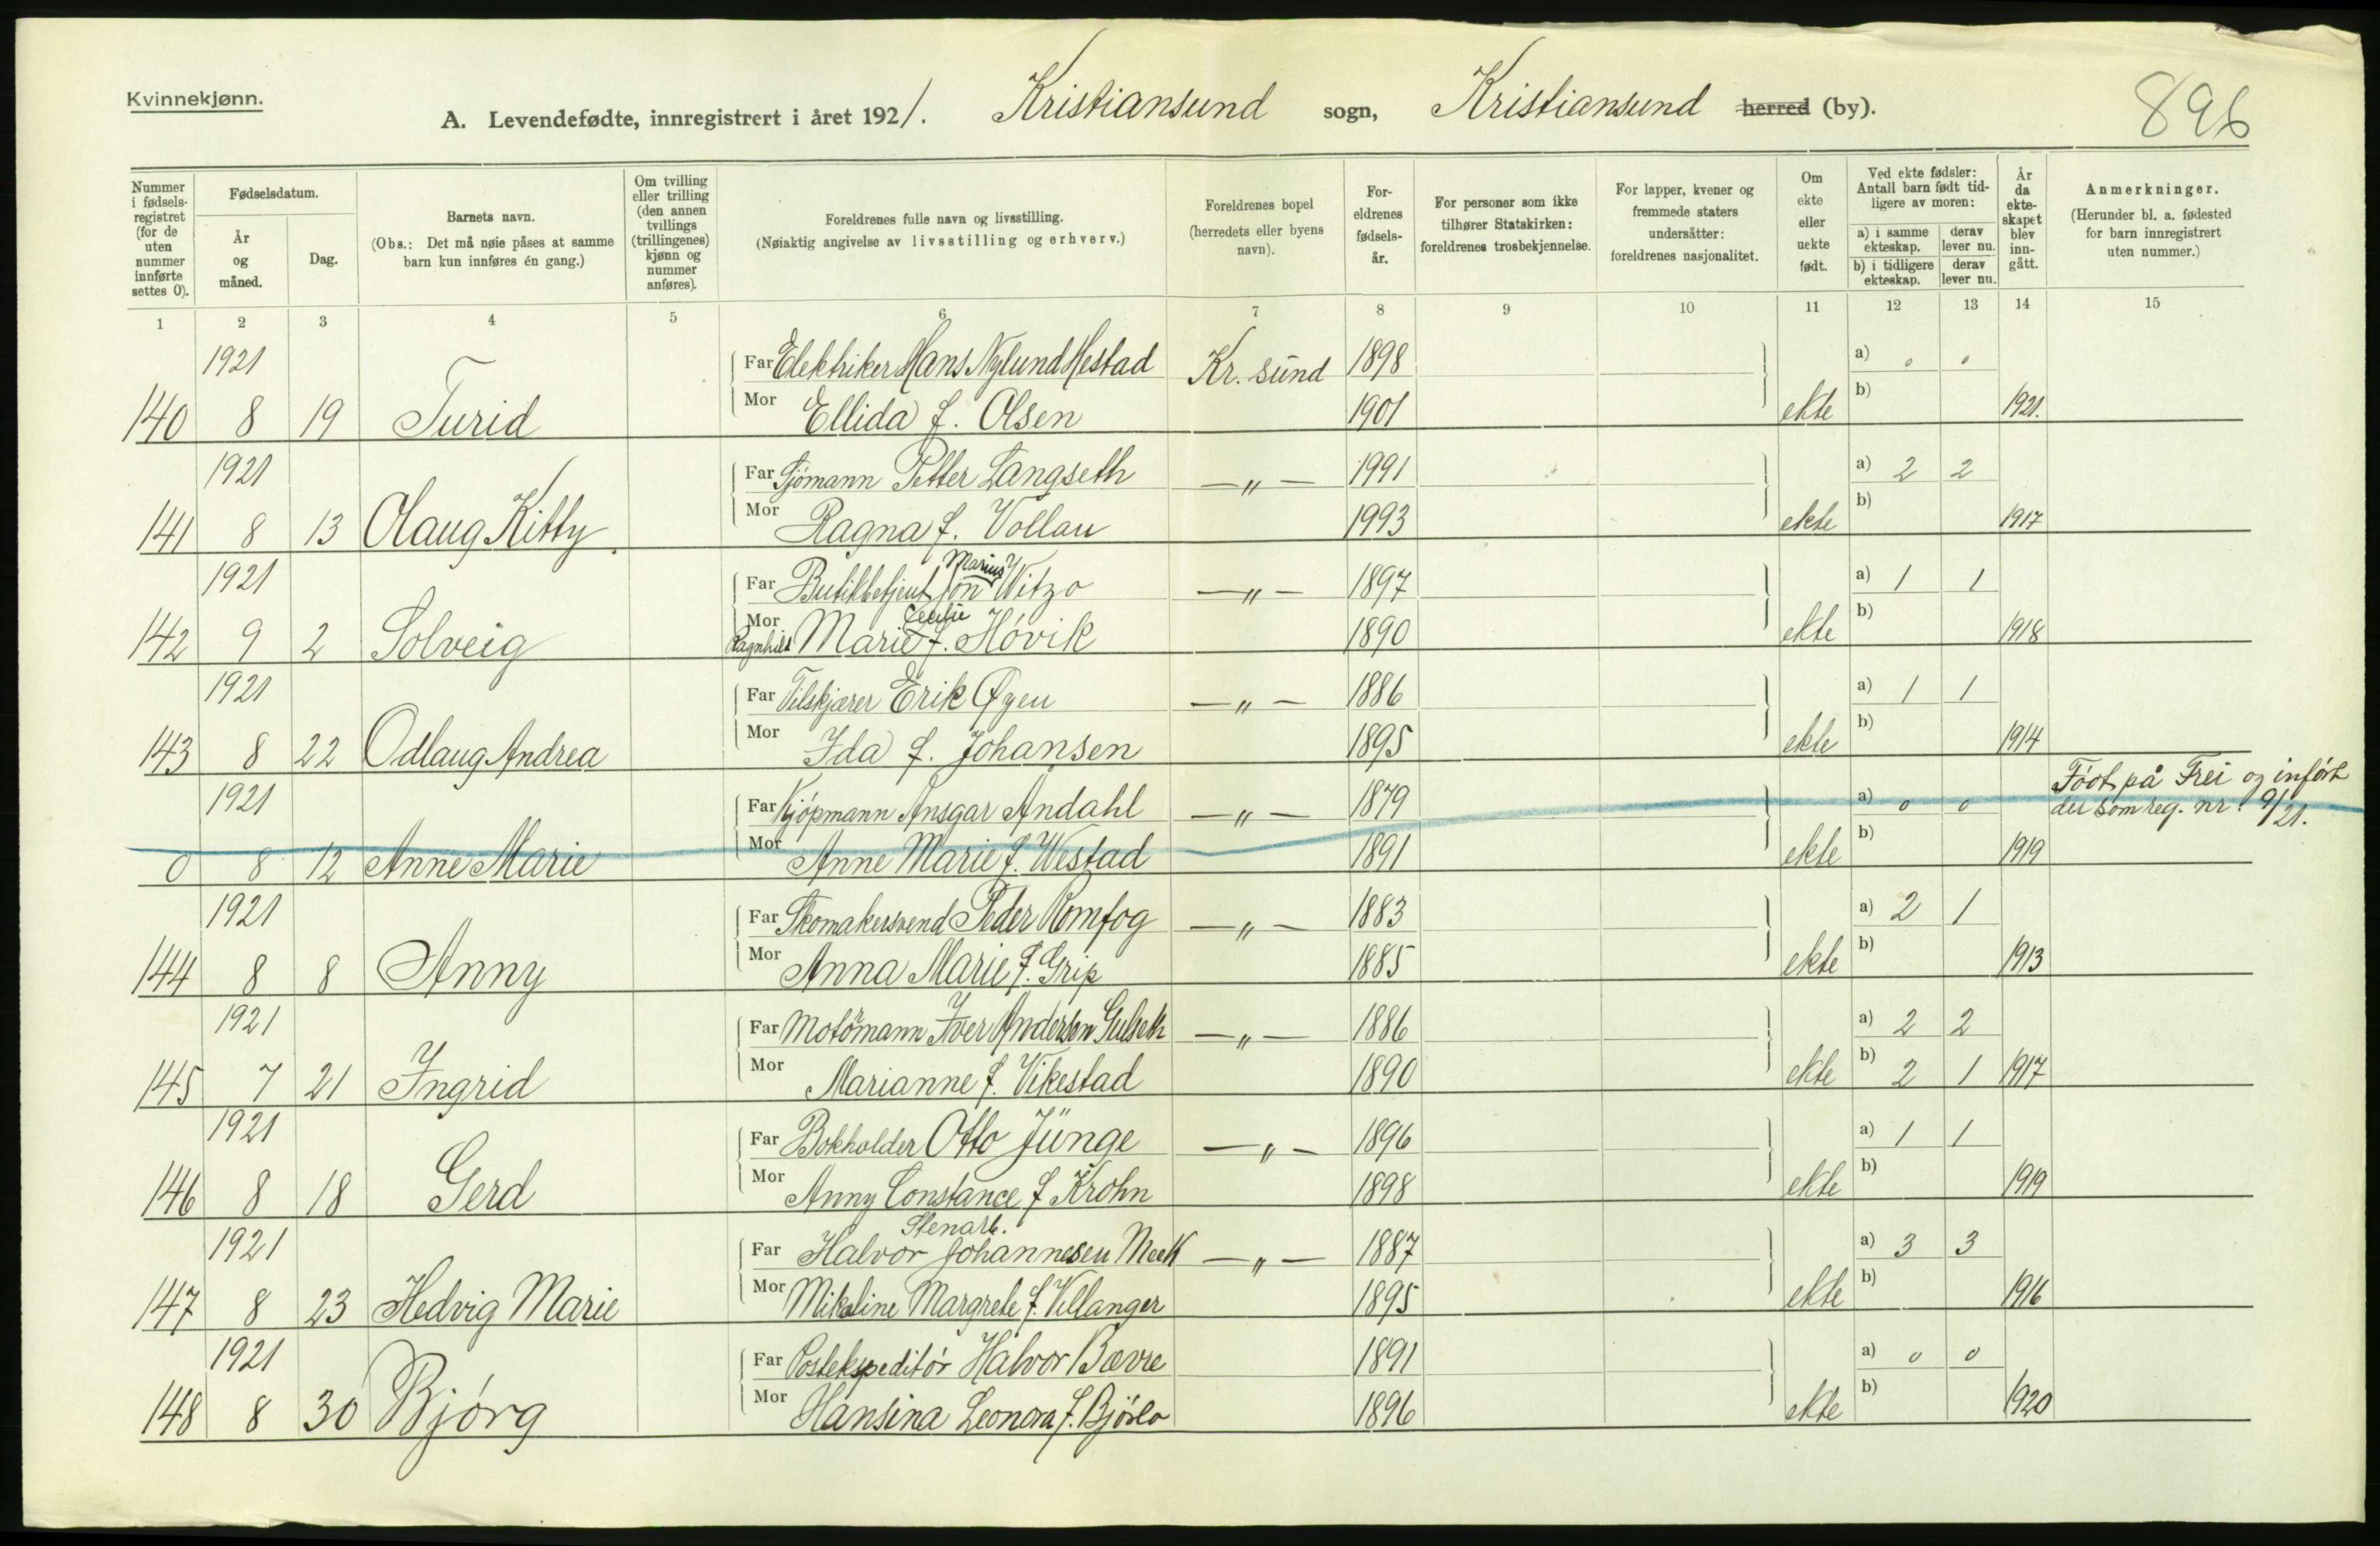 Kvinnekjønn.
A. Levendefødte, innregistrert i året 1921. Kristiansund sogn, Kristiansund herred (by).
896
Nummer i fødselsregistret (for de uten nummer innførte settes 0).
Fødselsdatum.
År og måned.
Dag.
Barnets navn.
(Obs.: Det må nøie påses at samme barn kun innføres én gang.)
Om tvilling eller trilling (den annen tvillings (trillingenes) kjønn og nummer anføres).
Foreldrenes fulle navn og livsstilling.
(Nøiaktig angivelse av livsstilling og erhverv.)
Foreldrenes bopel (herredets eller byens navn).
Foreldrenes fødselsår.
For personer som ikke tilhører Statskirken: foreldrenes trosbekjennelse.
For lapper, kvener og fremmede staters undersåtter: foreldrenes nasjonalitet.
Om ekte eller uekte født.
Ved ekte fødsler: Antall barn født tidligere av moren:
a) i samme ekteskap. derav lever nu.
b) i tidligere ekteskap. derav lever nu.
År da ekteskapet blev inngått.
Anmerkninger.
(Herunder bl. a. fødested for barn innregistrert uten nummer.)
1 2 3 4 5 6 7 8 9 10 11 12 13 14 15
1921 Far Elektriker Hans Nylund Hestad Kr. sund 1898 a) 0 0
140 8 19 Turid Mor Ellida f. Olsen 1901 ekte b) 1921.
1921 Far Sjømann Petter Langseth —„— 1991 a) 2 2
141 8 13 Olaug Kitty. Mor Ragna f. Vollan 1993 ekte b) 1917
1921 Far Butikbetjent Jon Marius Witzo —„— 1897 a) 1 1
142 9 2 Solveig Mor Ragnhild Marie Cecilie f. Hóvik 1890 ekte b) 1918
1921 Far Tilskjærer Erik Øyen —„— 1886 a) 1 1
143 8 22 Odlaug Andrea Mor Ida f. Johansen 1895 ekte b) 1914
1921 Far Kjøpmann Ansgar Andahl —„— 1879 a) 0 0 Fódt på Frei og infórt
der som reg. nr. 9/21.
0 8 12 Anne Marie Mor Anne Marie f. Westad 1891 ekte b) 1919
1921 Far Skomakersvend Peder Romfog —„— 1883 a) 2 1
144 8 8 Anny Mor Anna Marie f. Grip 1885 ekte b) 1913
1921 Far Motormann Iver Andersen Gulseth —„— 1886 a) 2 2
145 7 21 Ingrid Mor Marianne f. Vikestad 1890 ekte b) 2 1 1917
1921 Far Bokholder Otto Jünge —„— 1896 a) 1 1
146 8 18 Gerd Mor Anny Constance f Krohn 1898 ekte b) 1919
Stenarb.
1921 Far Halvor Johannesen Meek —„— 1887 a) 3 3
147 8 23 Hedvig Marie Mor Mikaline Margrete f. Villanger 1895 ekte b) 1916
1921 Far Postekspeditór Halvor Bævre 1891 a) 0 0
148 8 30 Bjórg Mor Hansina Leonora f. 1896 ekte b) 1920